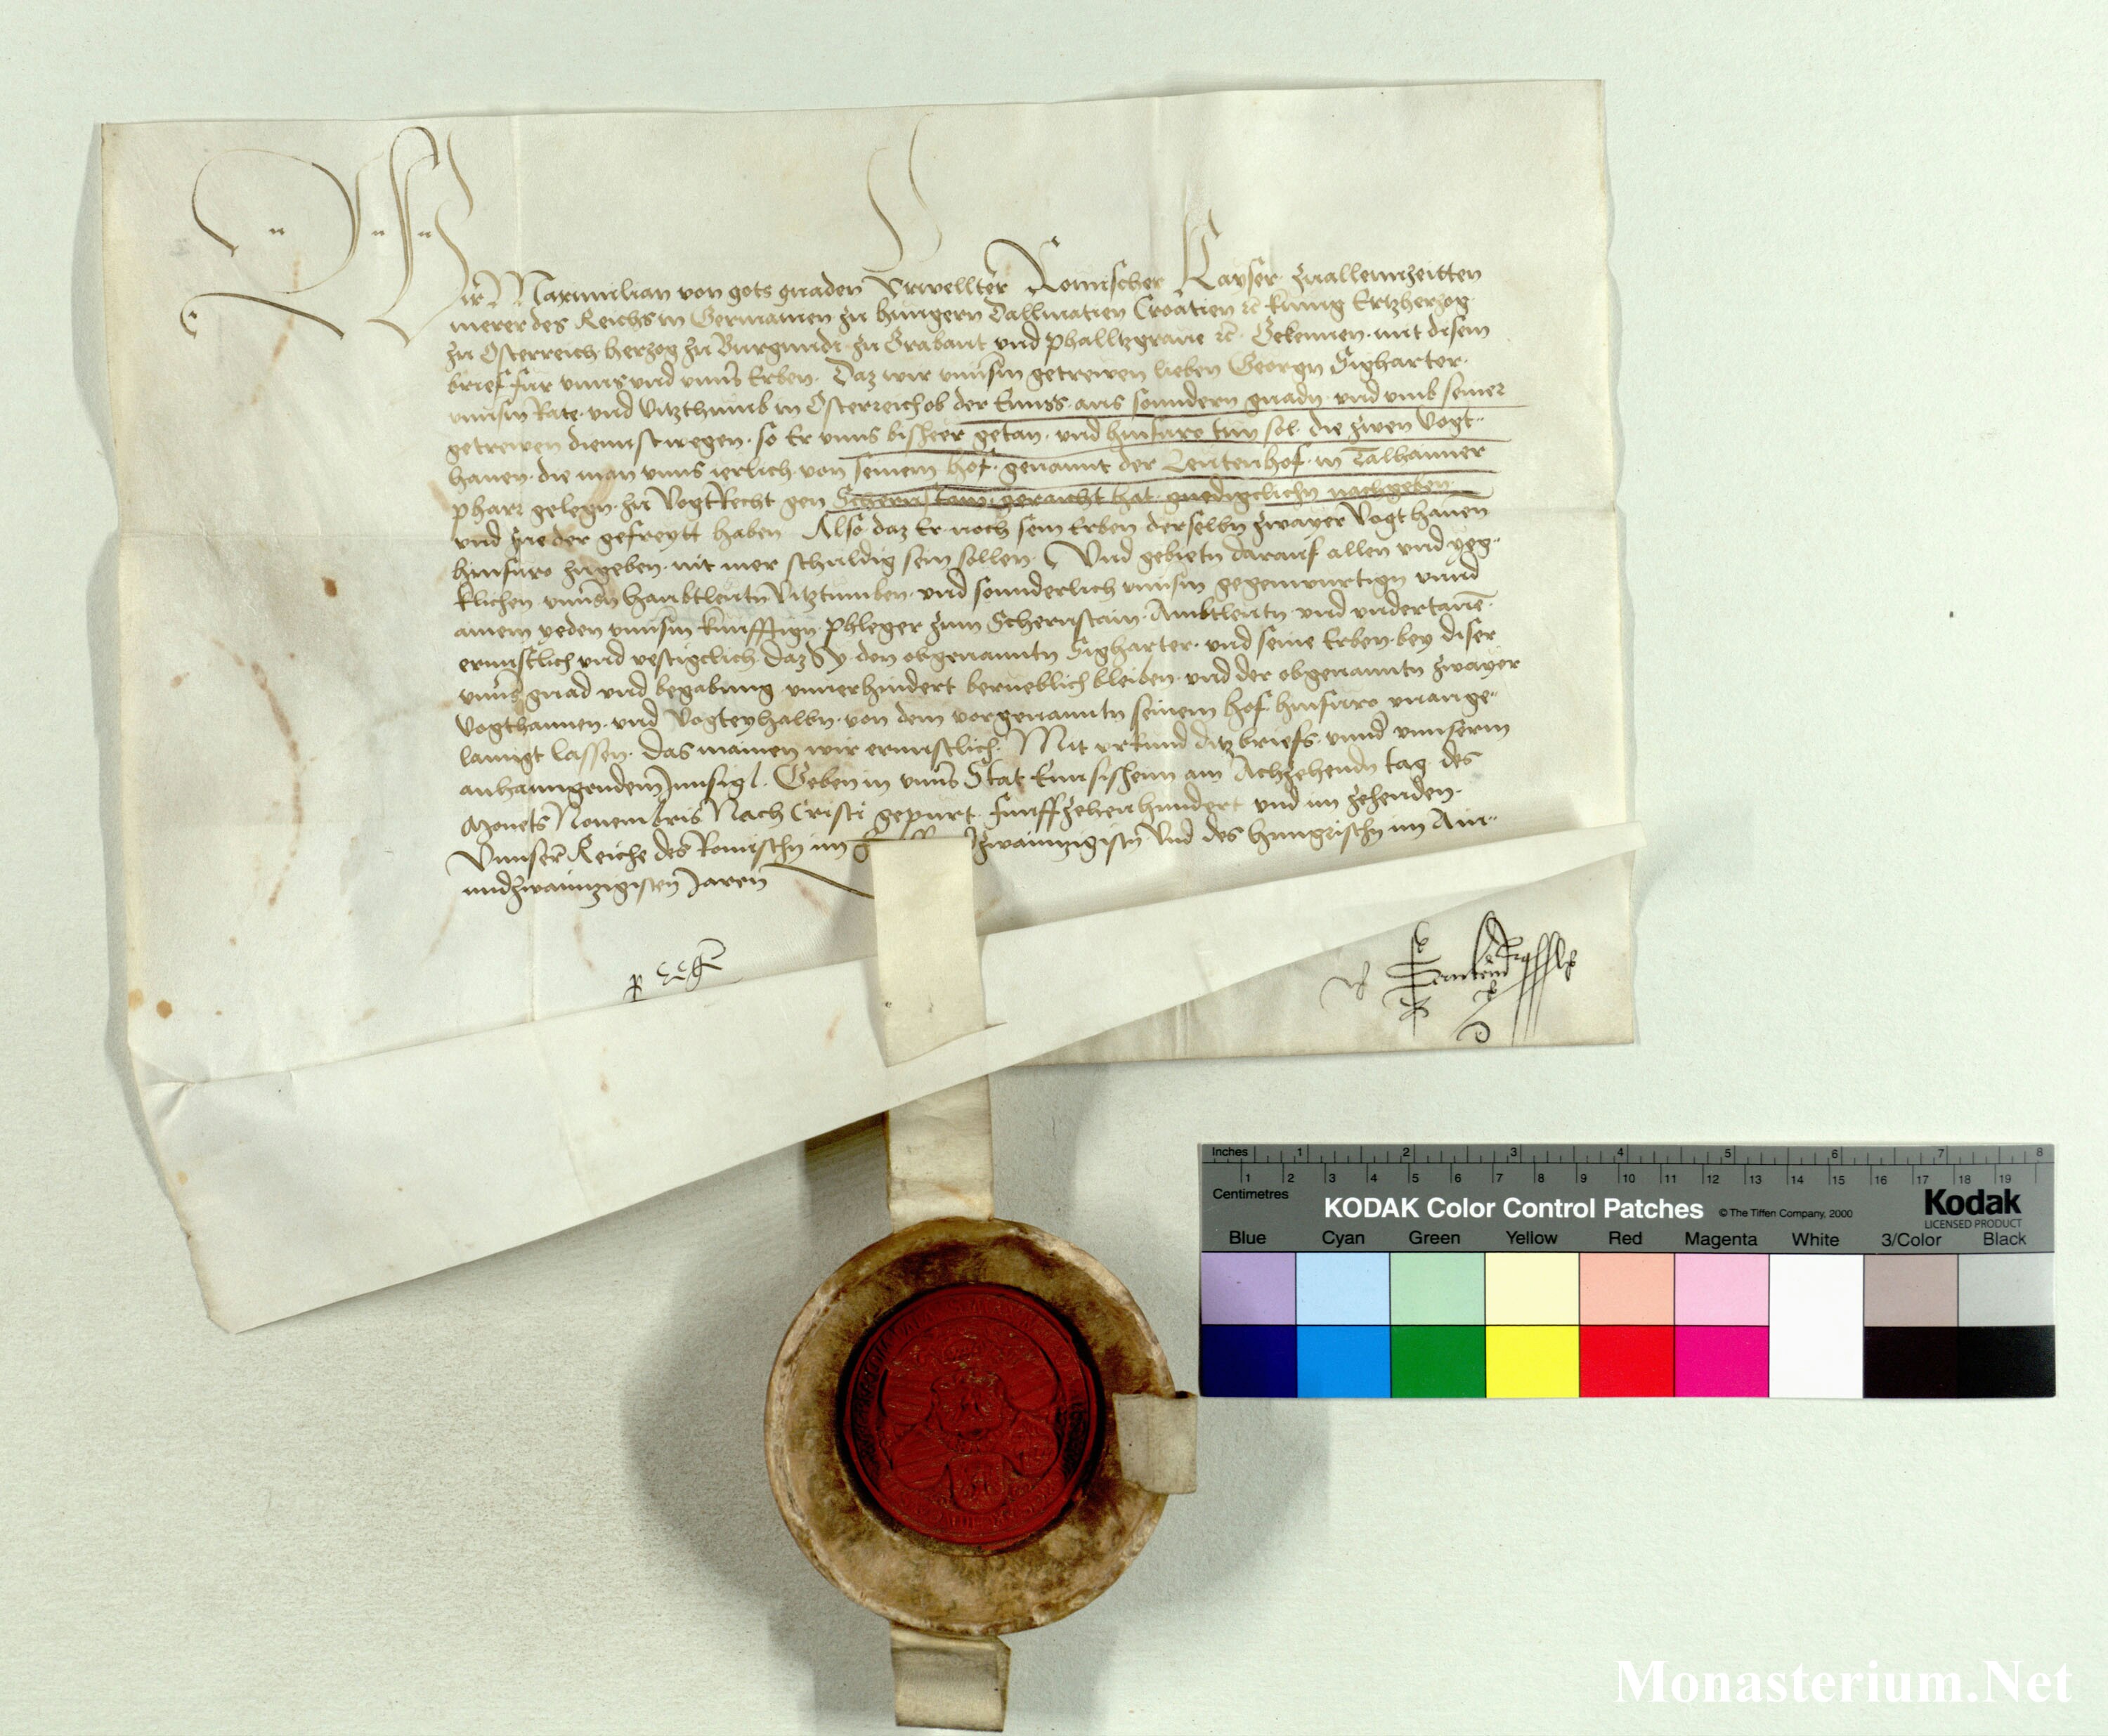 Wir Maximilian von gots gnaden Erwellter Romischer Kayser zuallennzeitten
merer des Reichs in Germanien zu Hungern Dallmatien Croatien ⁊c̃ kunig Ertzherzog
zu Osterreich herzog zu Burgundi zu Brabant vnd phalltzgraue ⁊c̃ Bekennen mit disem
brief fur vnns vnd vnns̃ Erben. Daz wir vnnsm̃ getrewen lieben Georgn Sigharter
vnnsm̃ Rate vnd Vitzthumb in Osterreich ob der Enns aus sonndern gnadn vnd vmb seiner
getrewen diennst wegen so Er vnns bisheer getan vnd hinfuro tun sol die zwen Vogt-
hanen die man vnns ierlich von seinem hof genannt der Leutenhof in Talhaimer
pharr gelegn zu VogtRecht gen Schernstain geraicht hat gnedigclichn nachgeben
vnd Jne der gefreytt haben Also daz Er noch sein Erben derselbn zwayer Vogthanen
hinfuro zugeben nit mer schuldig sein sollen. Vnd gebietn darauf allen vnd yeg-
klichen vnnsn̄ haubtleutn Vitztumben vnd sonnderlich vnnsm̃ gegenwurtign vnnd
ainem yeden vnnsm̃ kunfftign phleger zum Schernstain Ambtleutn vnd vndertanē
ernnstlich vnd vestigclich daz Sy den obgenanntn Sigharter vnd seine Erben bey diser
vnns̃ gnad vnd begabung vnuerhindert berueblich bleiben vnd der obgenanntn zwayer
Vogthannen vnd Vogteyhalbn von dem vorgenanntn seinem hof hinfuro vnange-
lanngt lassen. Das mainen wir ernnstlich. Mit vrkund ditz briefs vnnd vnnserm
anhanngendem Innsigl. Geben in vnns̃ Stat Ennsisheim am Achzehendn tag des
Monets Nouembris Nach Cristi gepurt Funffzehenhundert vnd im zehenden
Vnnser̃ Reiche des Romischn im zwainnzigistn Vnd des hungrischn im Ain-
undzwainnzigisten Jaren
Inches 1 2 3 4 5 6 7 8
1 2 3 4 5 6 7 8 9 10 11 12 13 14 15 16 17 18 19
Centimetres
KODAK Color Control Patches © The Tiffen Company, 2000
Kodak
LICENSED PRODUCT
Blue Cyan Green Yellow Red Magenta White 3/Color Black
Monasterium.Net